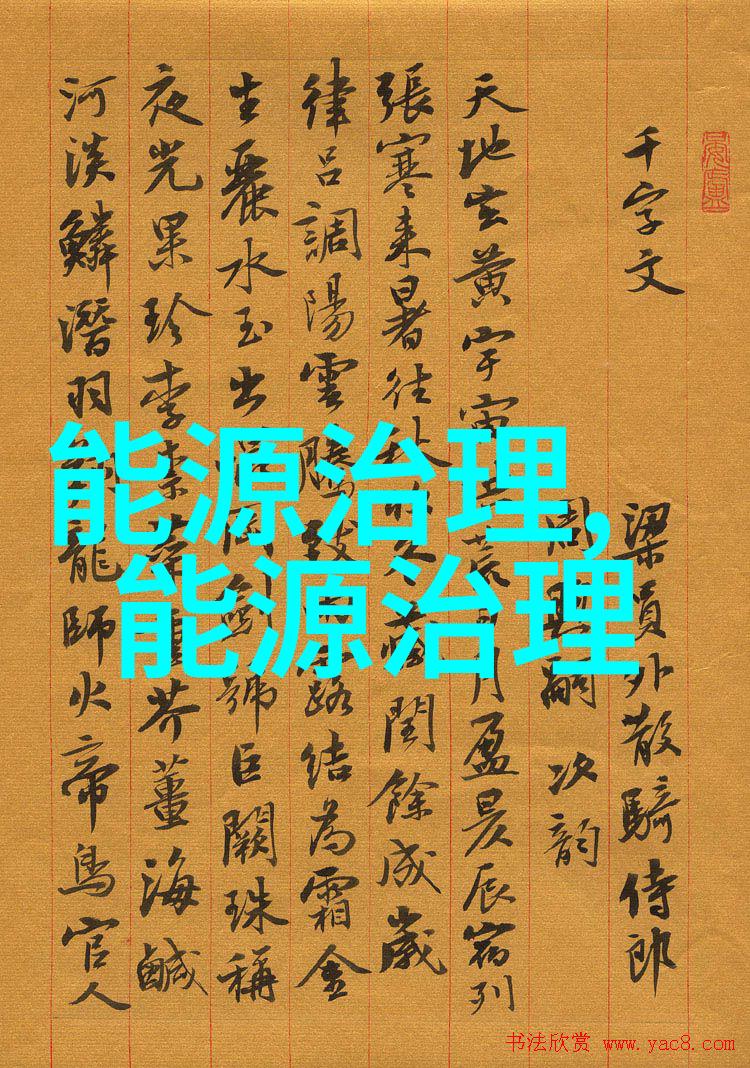 千字文
梁員外散騎侍郎
周興嗣 次韵
天地玄黄宇宙荒日月盈昃辰宿列
張寒来暑往秋收冬藏閏餘成歲
律呂調陽雲騰致露結為霜金
生麗水玉出崑岡劍號巨闕珠稱
夜光果珍李柰菜重芥薑海鹹
河淡鱗潛羽龍師火帝鳥官人
能源治理,
能源治理
书法欣赏 www.yac8.com